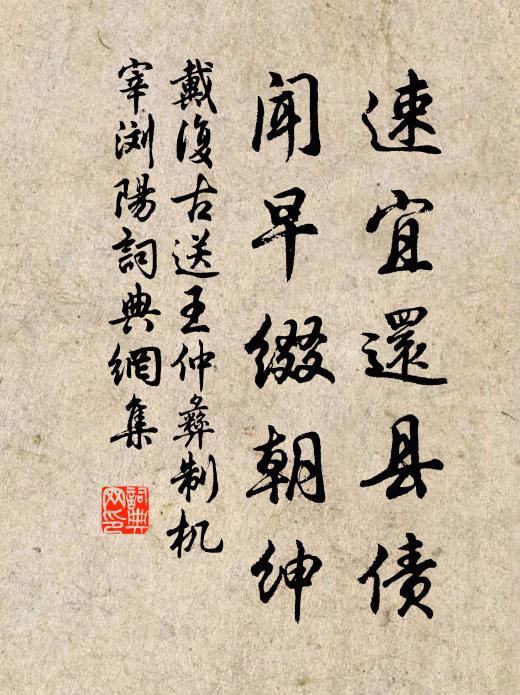 速宜還县债
聞早綴朝紳
戴復古送王仲彝制机
宰浏陽詞典網集
詞典网印